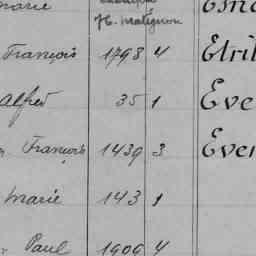 marie
H. Matignon
François 1793 4 Etri
Alfred 35 1 Eve
François 1439 3 Eve
Marie 143 1
Paul 1906 4